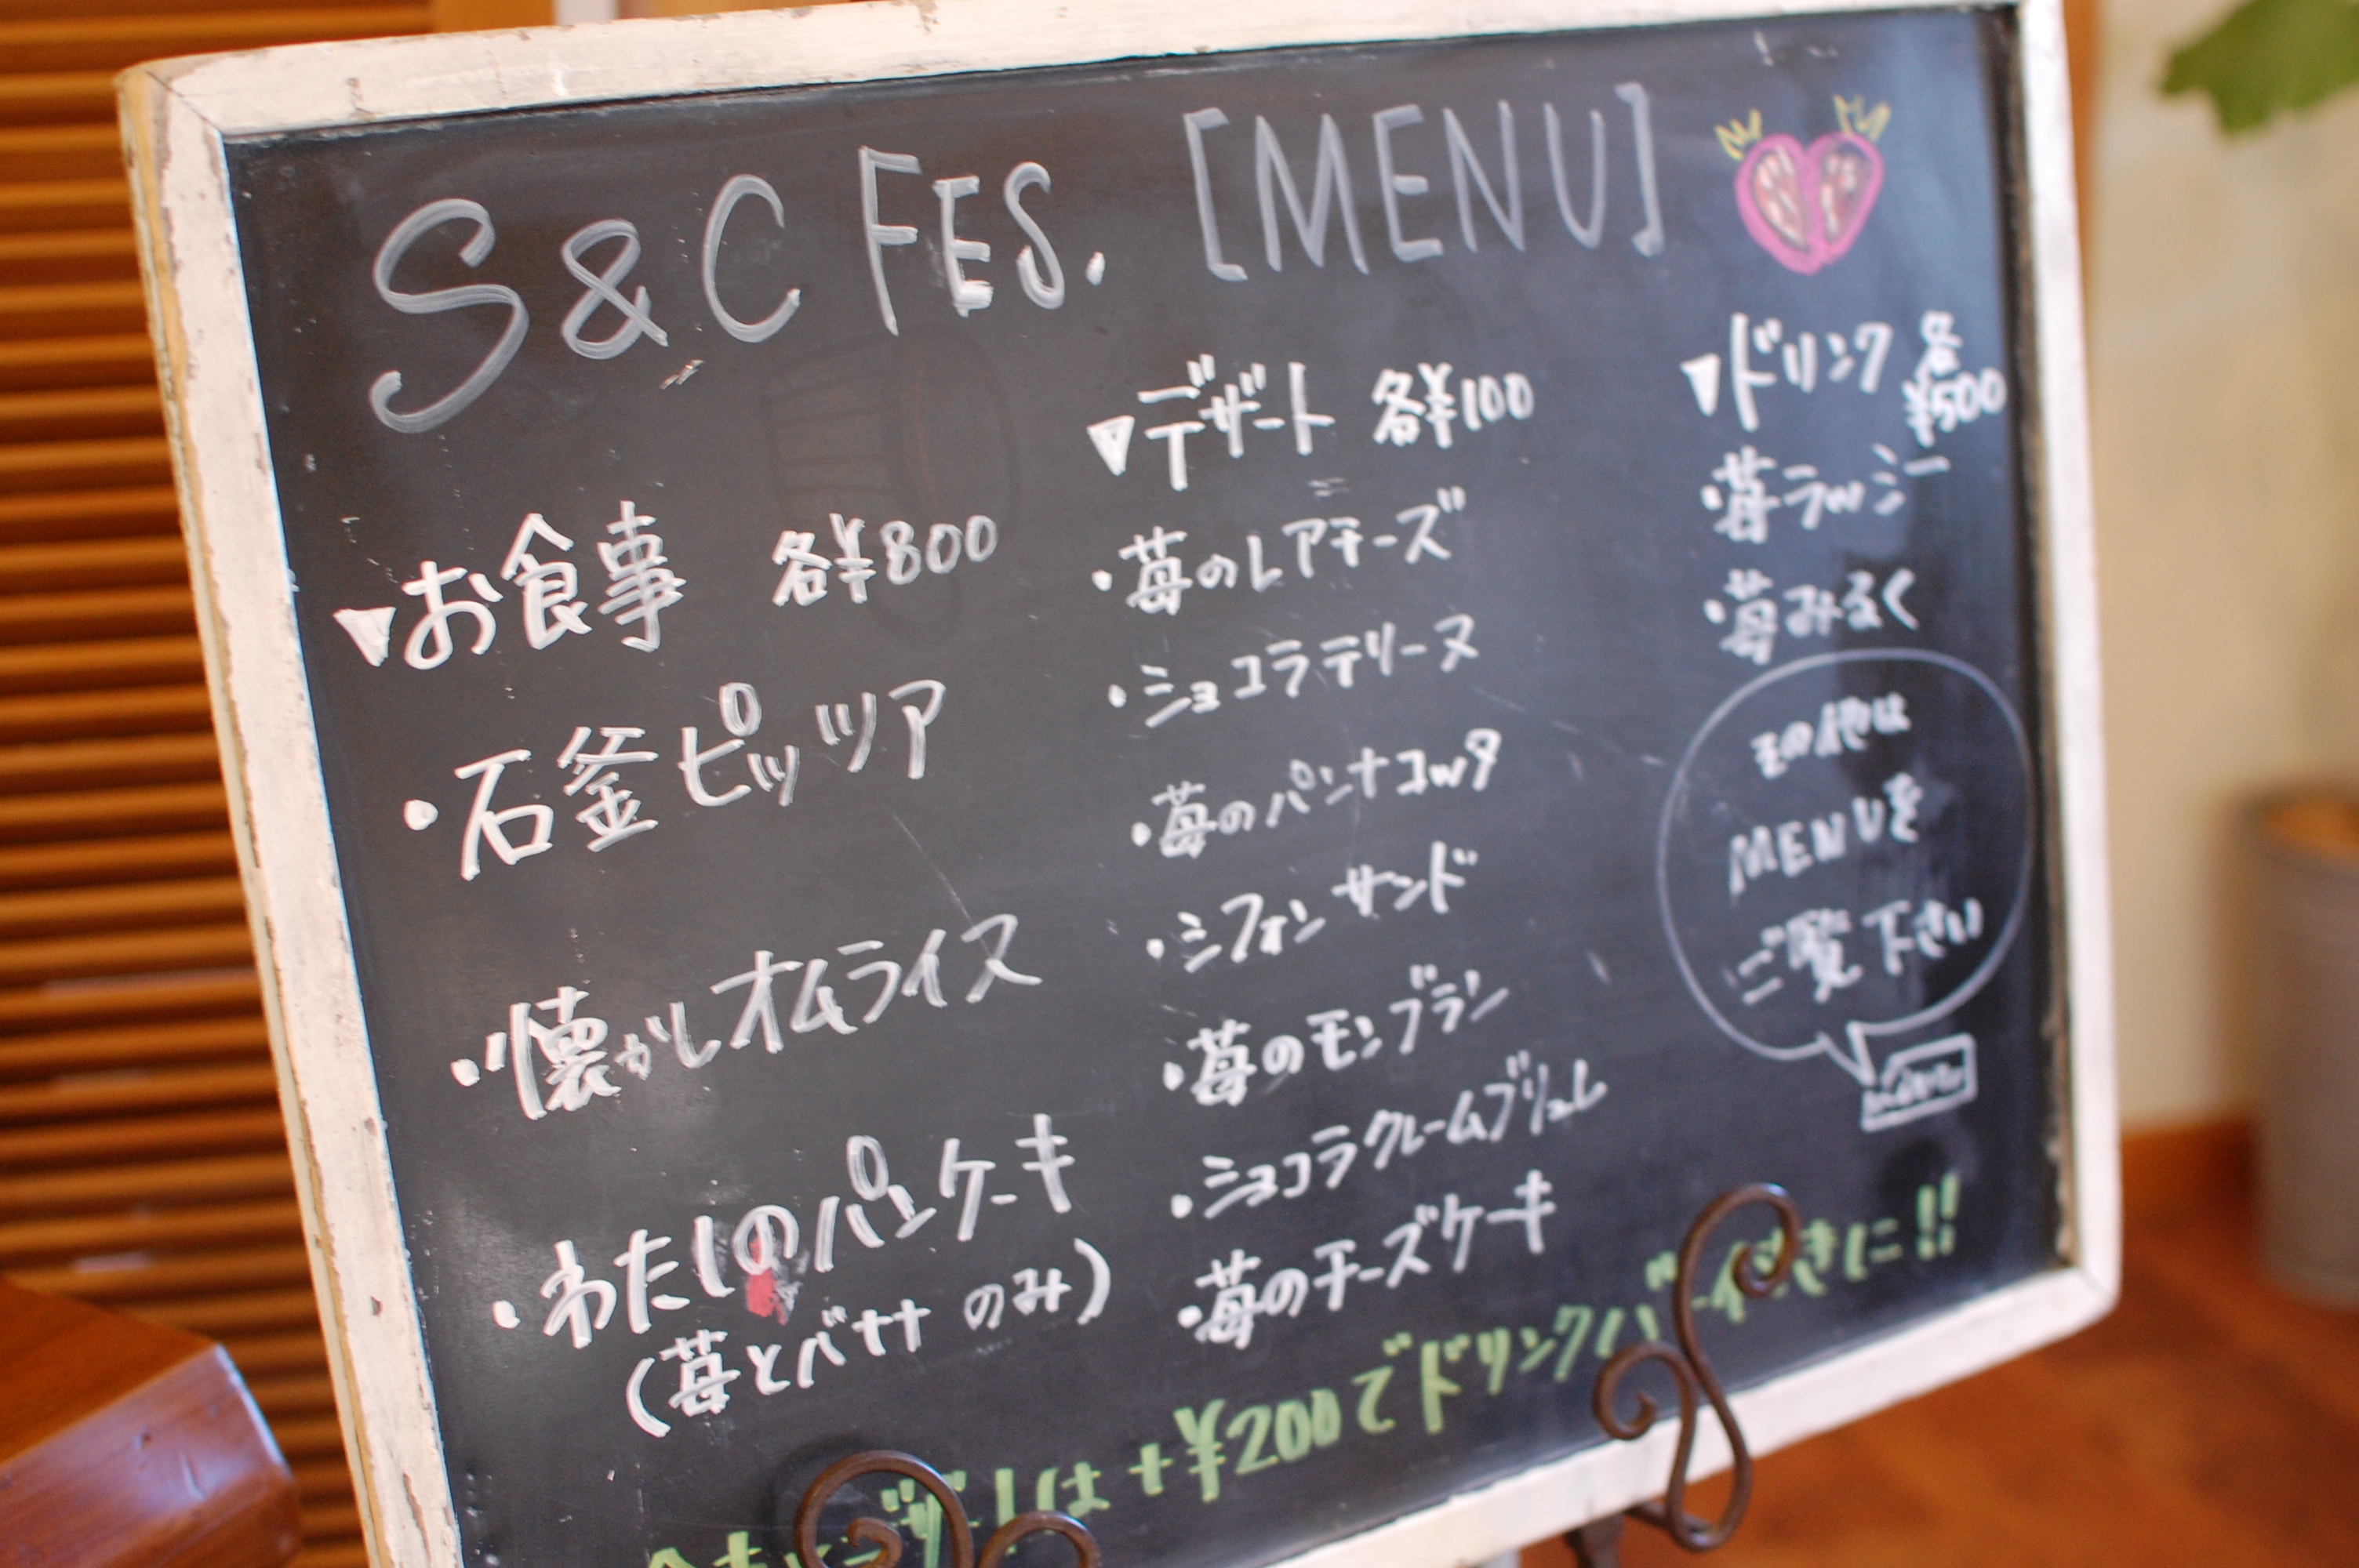 S&C FES. [MENU]
▼お食事 各¥800
・石釜ピッツァ
・懐かしオムライス
・わたしのパンケーキ
(苺とバナナのみ)
▼デザート 各¥100
・苺のレアチーズ
・ショコラテリーヌ
・苺のパンナコッタ
・シフォンサンド
・苺のモンブラン
・ショコラクレームブリュレ
・苺のチーズケーキ
▼ドリンク 各¥500
・苺ラッシー
・苺みるく
その他は
MENUを
ご覧下さい
は+¥200でドリンクバー付きに!!